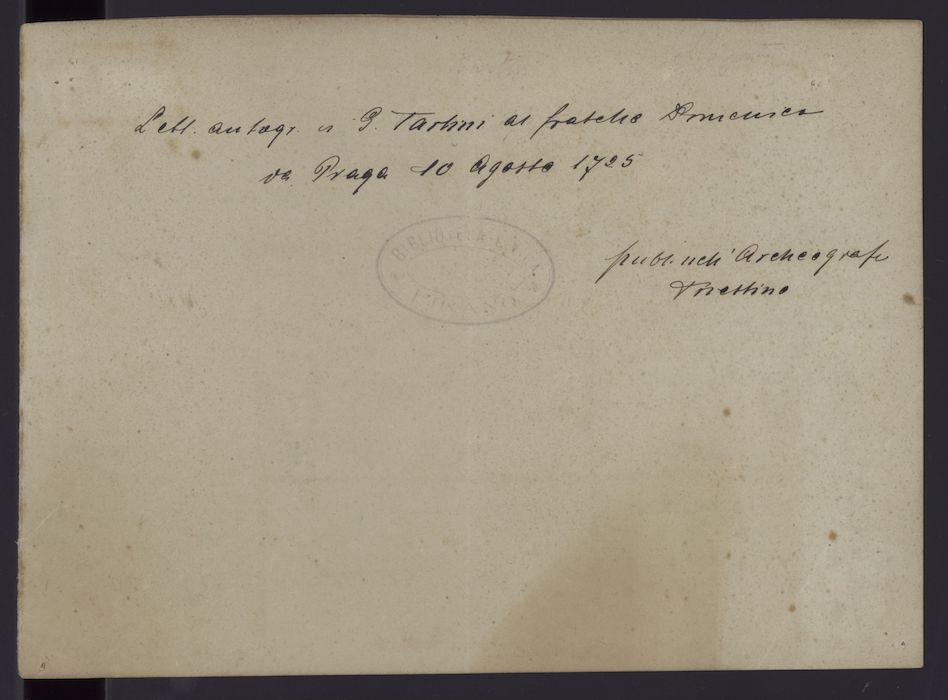 Lett. autogr. di G. Tartini al fratello Domenico
da Praga 10 Agosto 1725
publ. nell' Archeografo
Triestino
BIBLIOTECA CIVICA
PIRANO